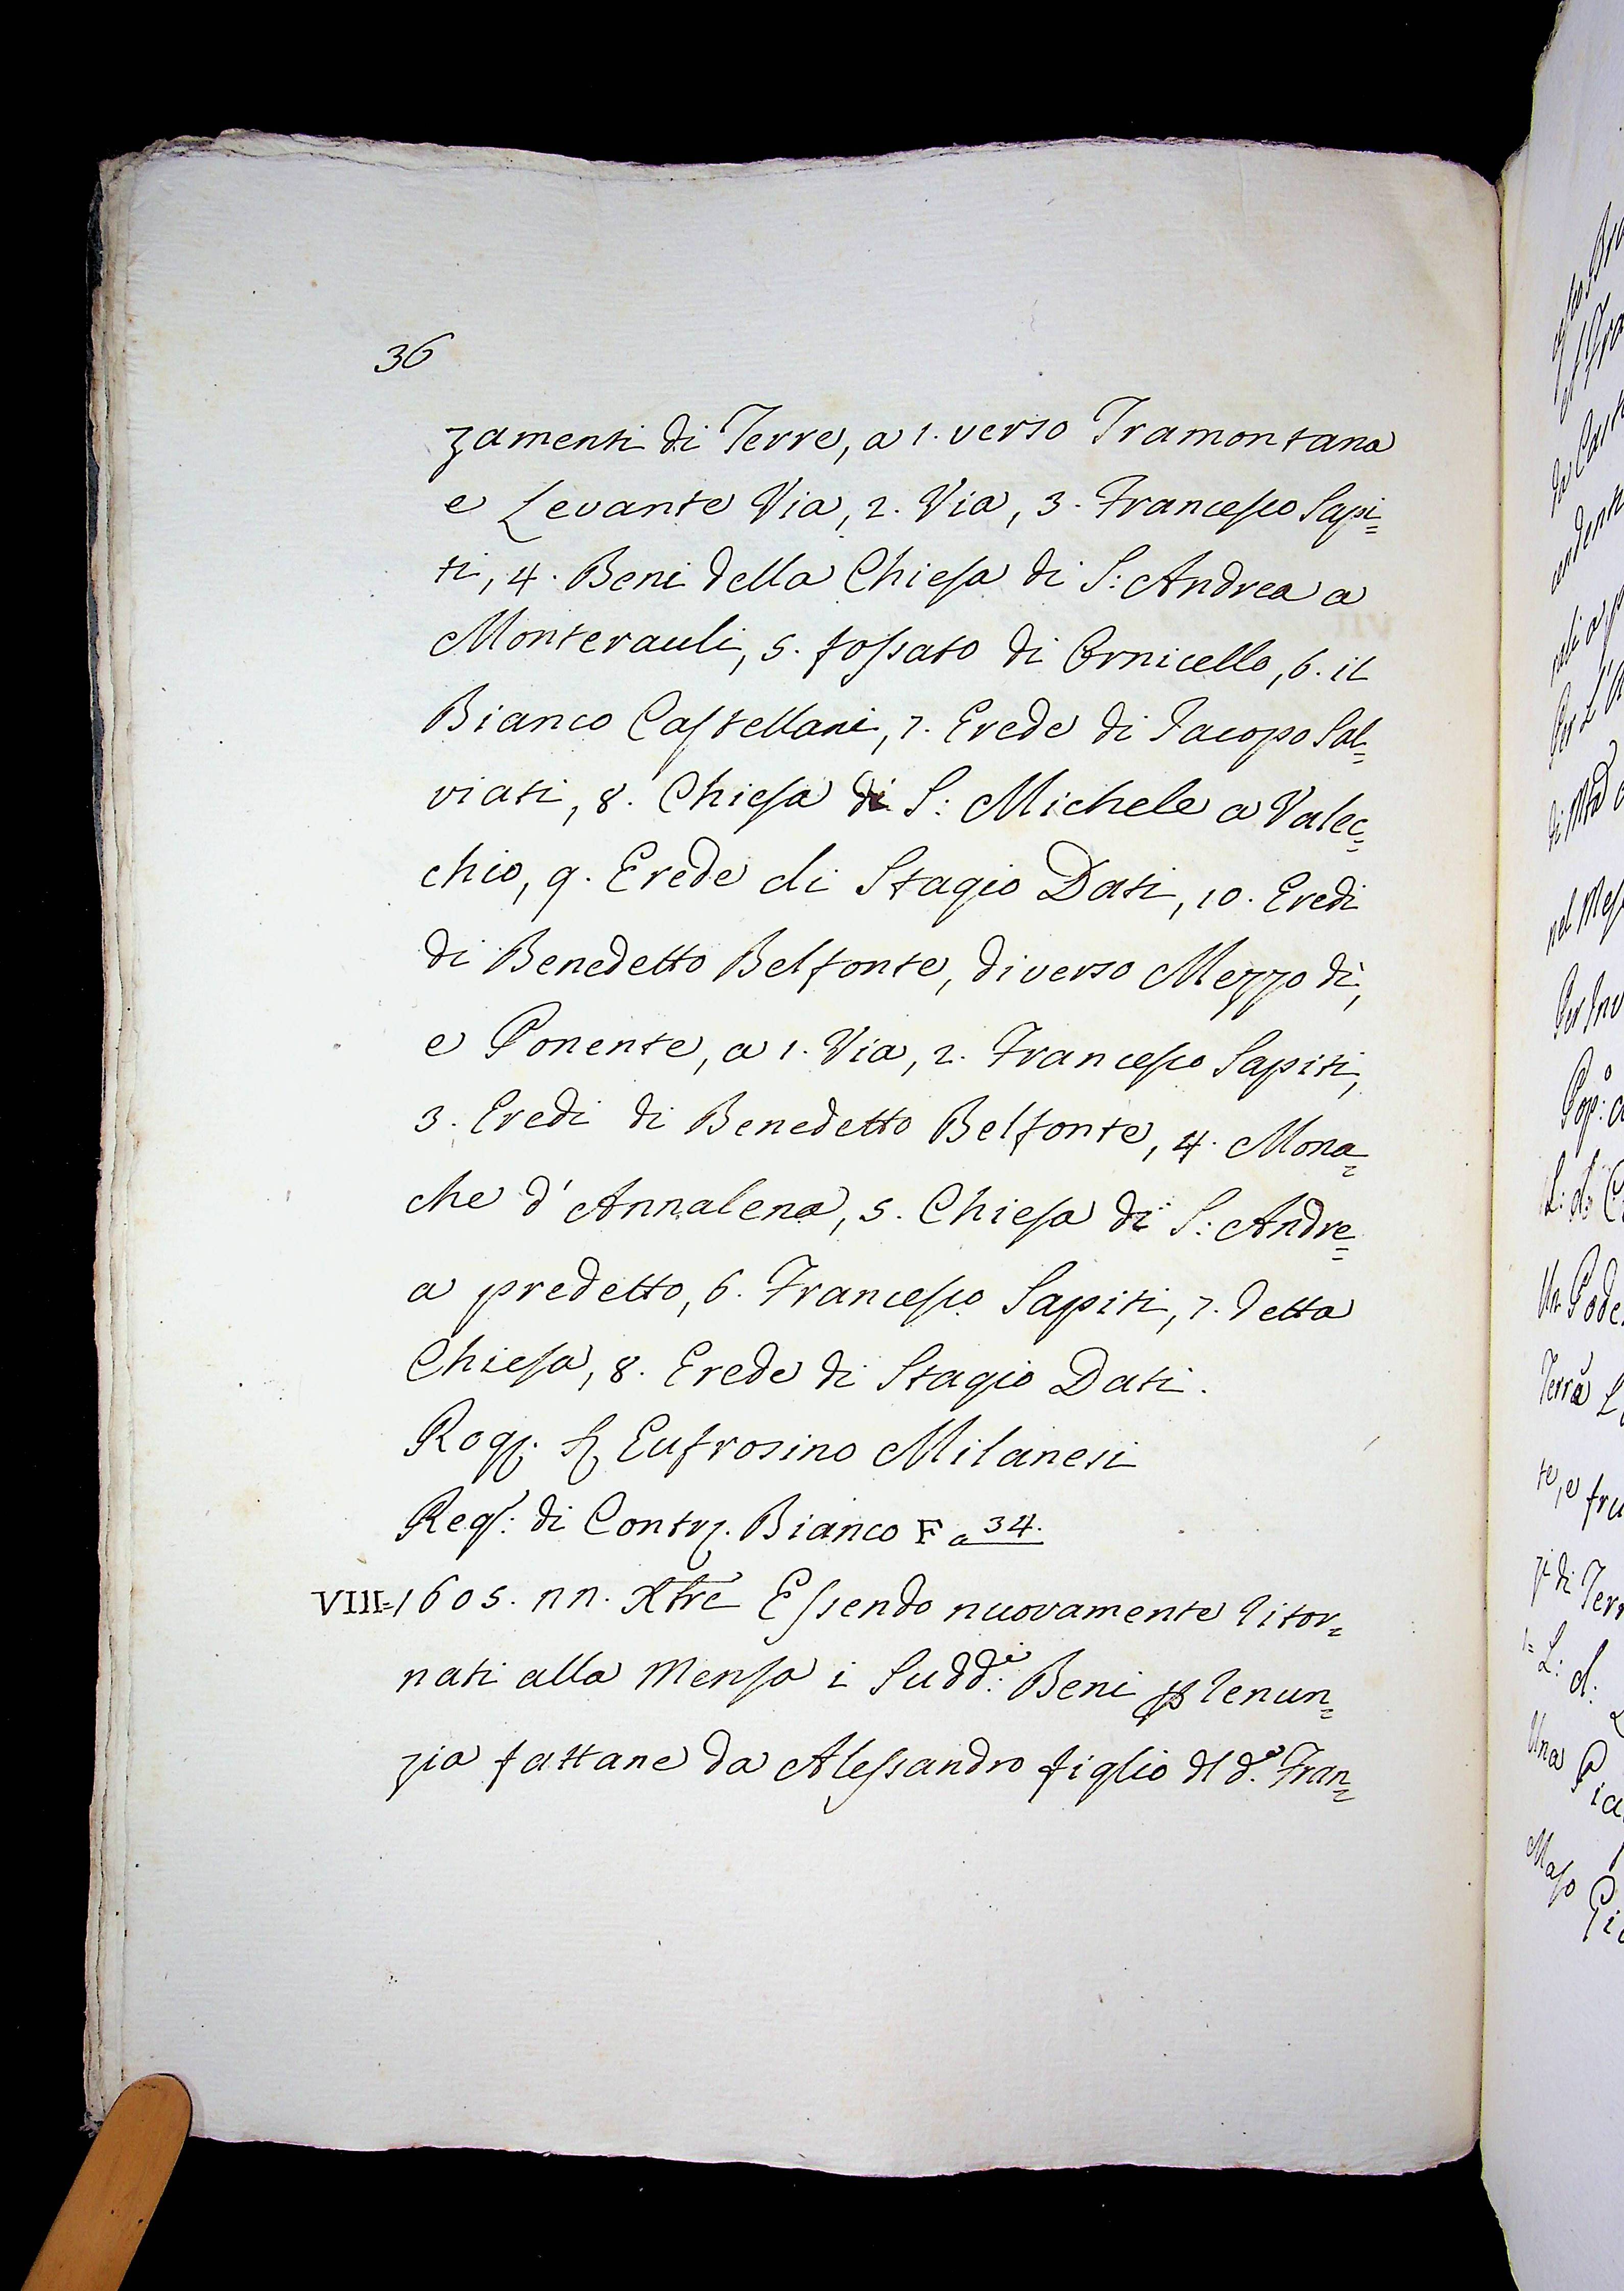 36
zamenti di Terre, a 1. verso Tramontana
e Levante Via, 2. Via, 3. Francesco Sapi=
ti, 4. Beni della Chiesa di S: Andrea a
Monterauli, 5. fossato di Cornicello, 6. il
Bianco Castellani, 7. Erede di Jacopo Sal=
viati, 8. Chiesa di S: Michele a Valec=
chio, 9. Erede di Stagio Dati, 10. Eredi
di Benedetto Belfonte, di verso Mezzo dì,
e Ponente, a 1. Via, 2. Francesco Sapiti,
3. Eredi di Benedetto Belfonte, 4. Mona=
che d'Annalena, 5. Chiesa di S: Andre=
a predetto, 6. Francesco Sapiti, 7. detta
Chiesa, 8. Erede di Stagio Dati.
Rog. Eufrosino Milanesi
Reg: di Contr. Bianco F a 34.
VIII=1605. nn. Xbre Essendo nuovamente ritor=
nati alla Mensa i Sudd:i Beni p renun=
zia fattane da Alessandro figlio dl d.o Fran=